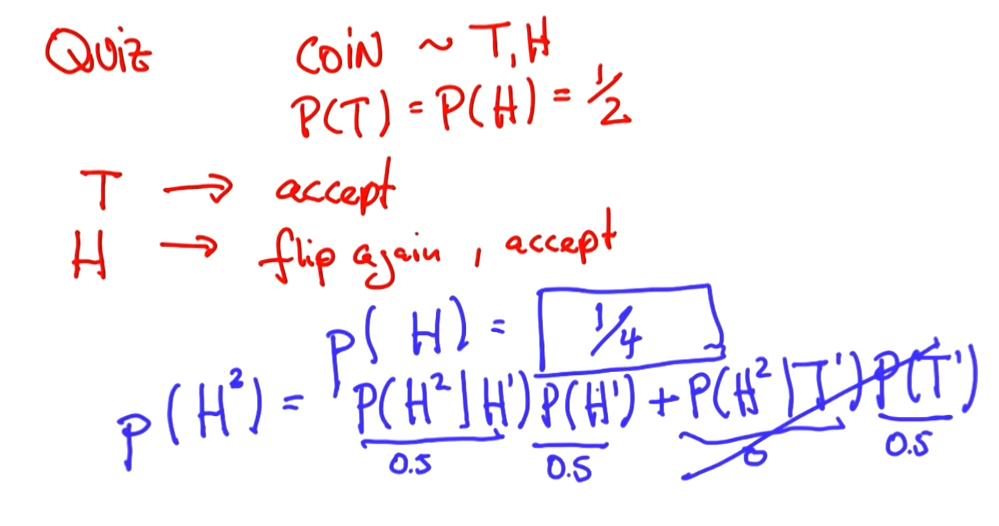 Quiz COIN ~ T, H
P(T) = P(H) = 1/2
T → accept
H → flip again, accept
P( H) = 1/4
P(H²) = P(H²|H¹) P(H¹) + P(H²|T¹) P(T¹)
0.5 0.5 0 0.5